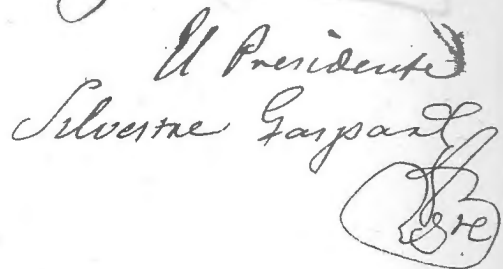 El Presidente
Silvestre Gaspar